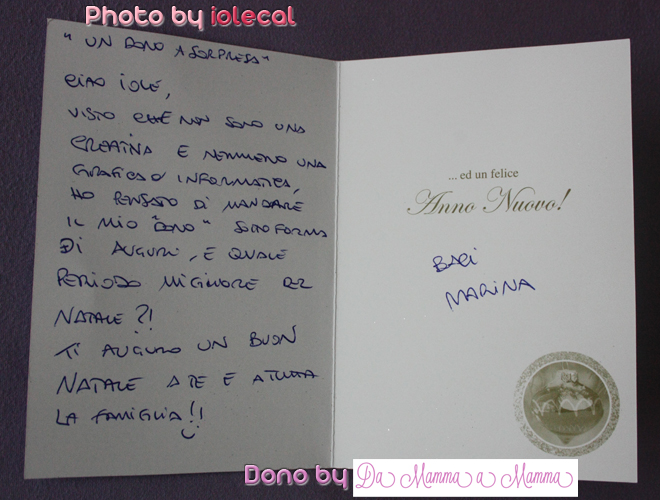 Photo by iolecal
"UN DONO A SORPRESA"
CIAO IOLE,
VISTO CHE NON SONO UNA
CREATIVA E NEMMENO UNA
GRAFICA O INFORMATICA,
HO PENSATO DI MANDARE
IL MIO "DONO" SOTTO FORMA
DI AUGURI, E QUALE
PERIODO MIGLIORE PER
NATALE?!
TI AUGURO UN BUON
NATALE A TE E A TUTTA
LA FAMIGLIA!!
... ed un felice
Anno Nuovo!
BACI
MARINA
Dono by Da Mamma a Mamma